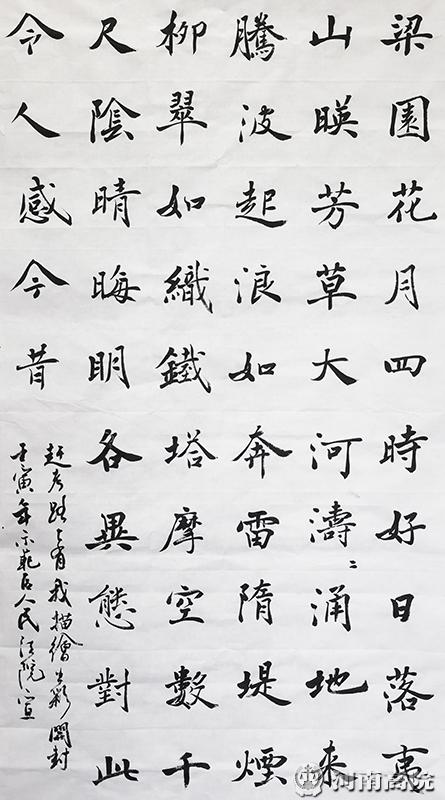 梁園花月四時好日落夷
山暎芳草大河濤〻涌地来
騰波起浪如奔雷隋堤煙
柳翠如織鐵塔摩空數千
尺陰晴晦明各異態對此
令人感今昔
赶考路上有我描繪出彩開封
壬寅年示範區人民法院宣
河南高院